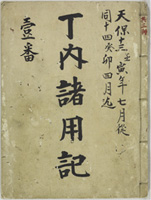 天保十三壬寅年七月從
同十四癸卯四月迄
丁内諸用記
壹番